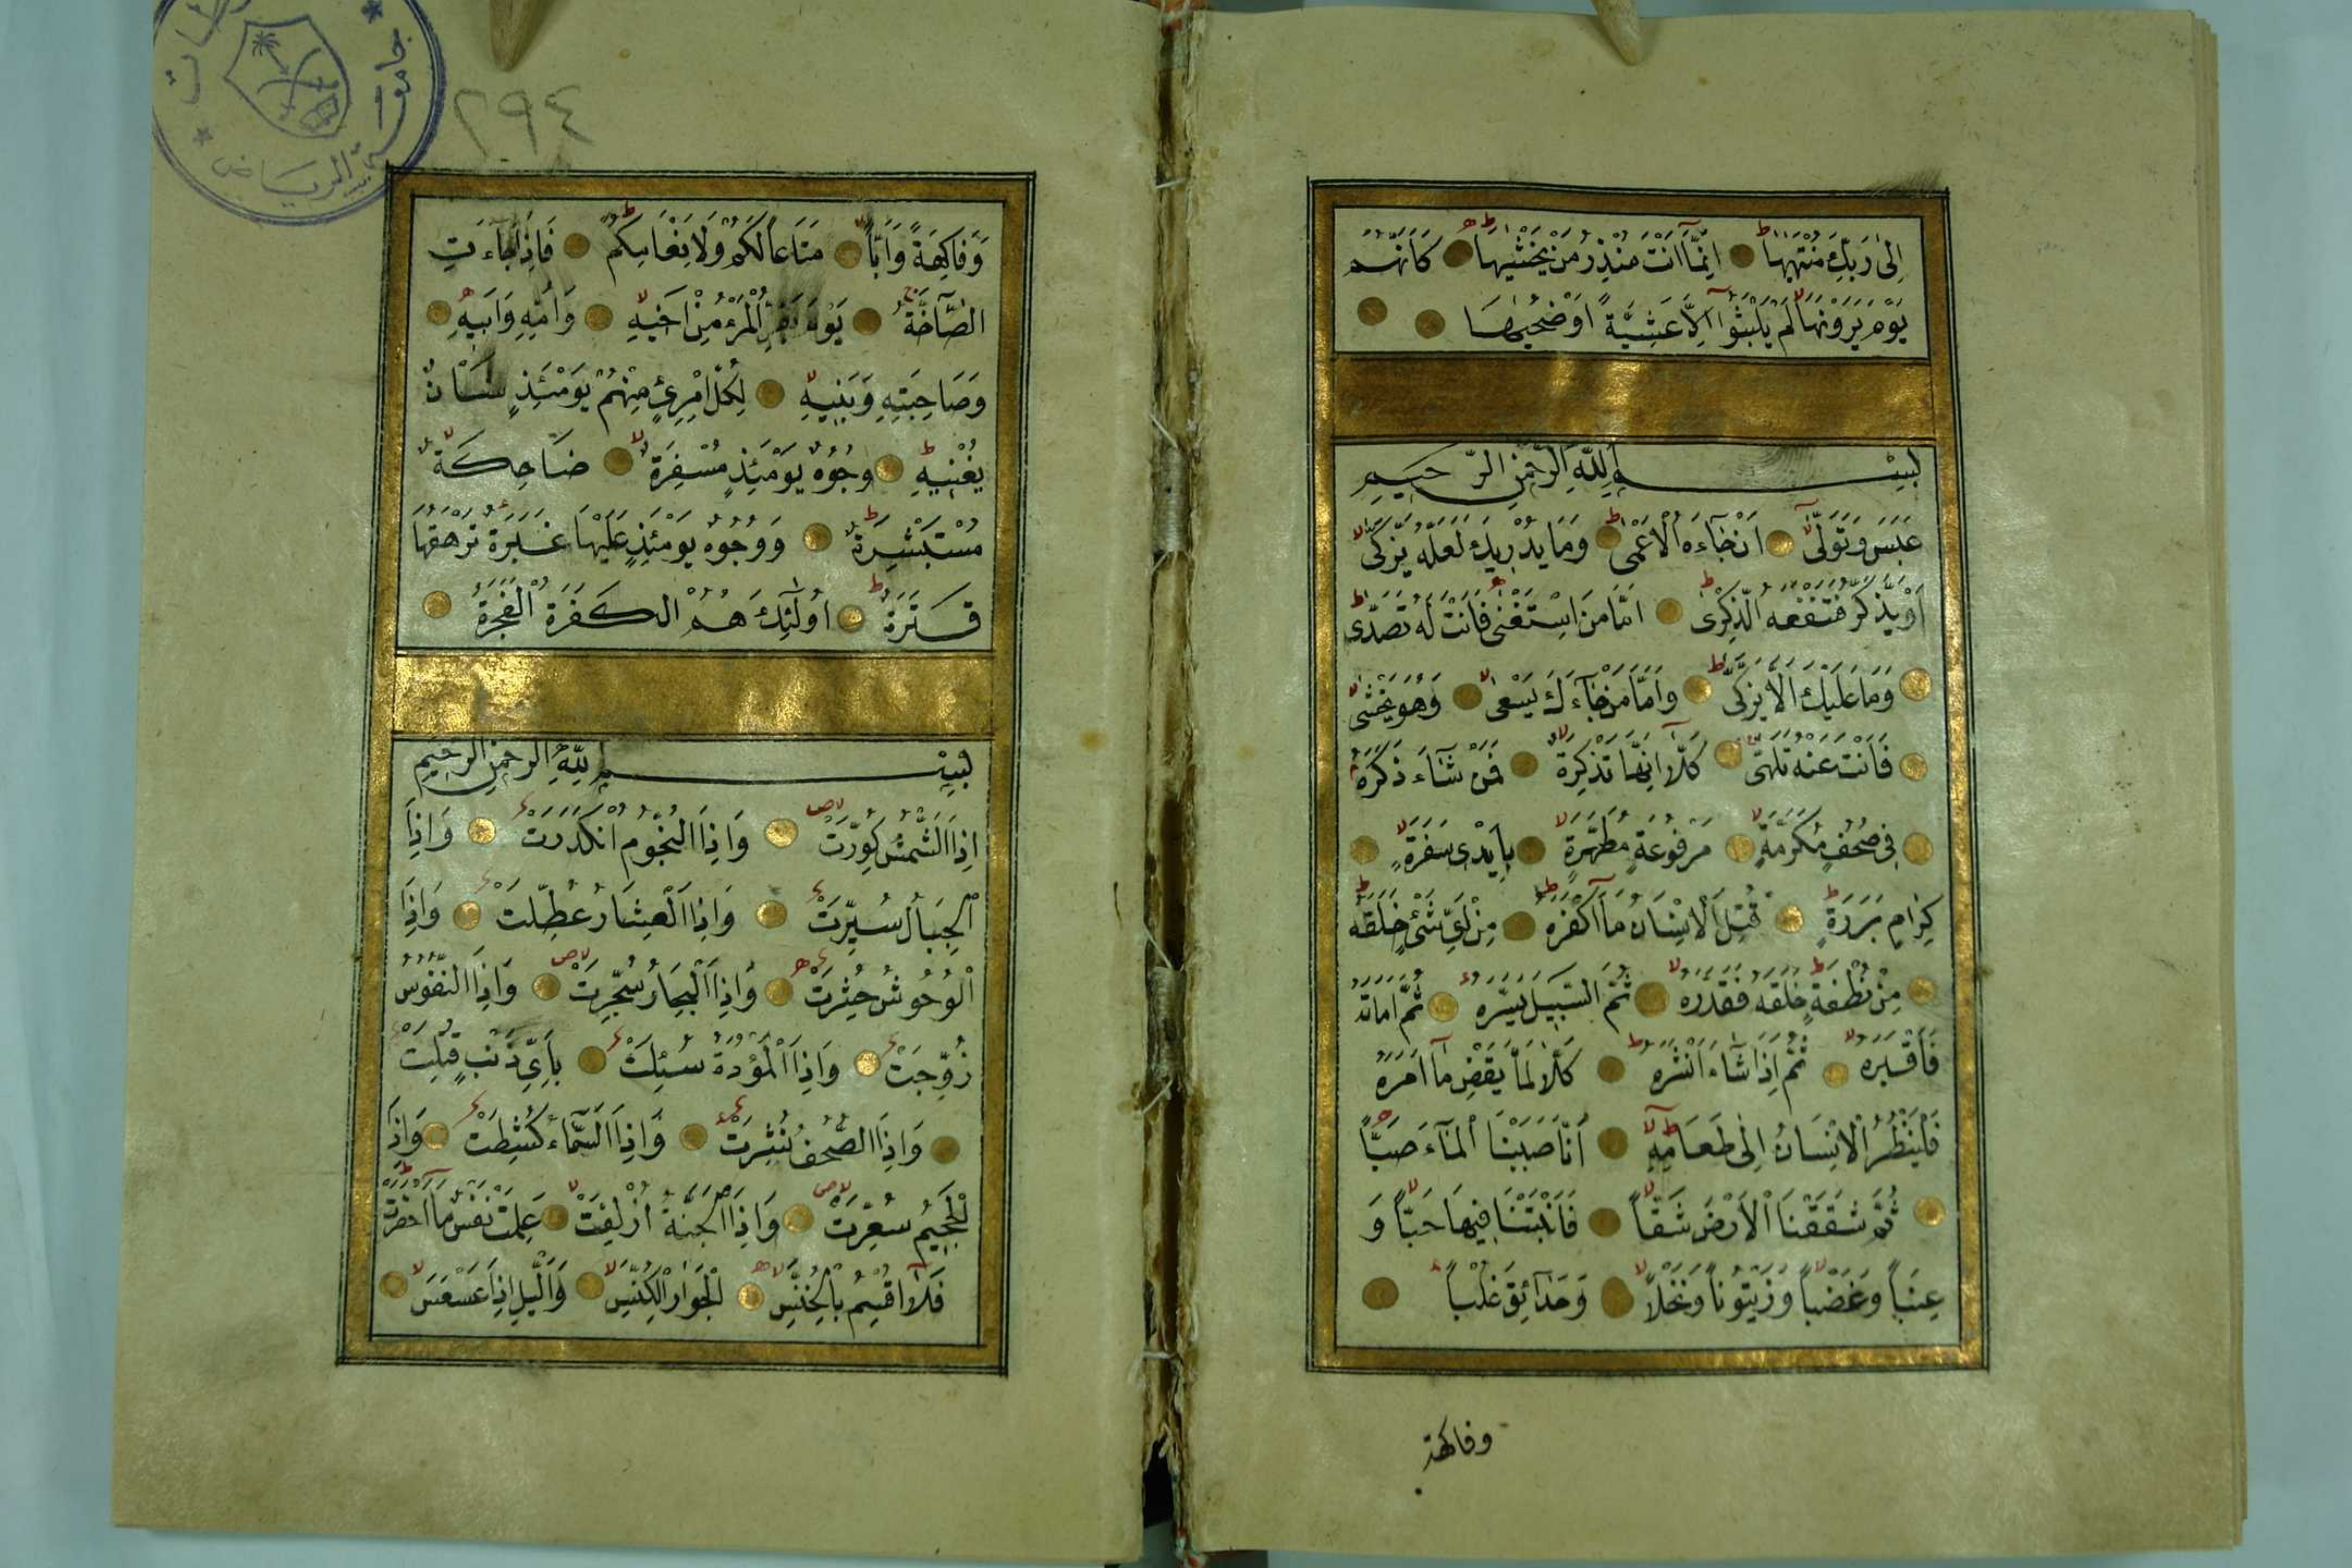 اِلٰى رَبِّكَ مُنْتَهٰيهَا اِنَّمَٓا اَنْتَ مُنْذِرُ مَنْ يَخْشٰيهَا كَاَنَّهُمْ
يَوْمَ يَرَوْنَهَا لَمْ يَلْبَثُٓوا اِلَّا عَشِيَّةً اَوْ ضُحٰيهَا
بِسْمِ اللّٰهِ الرَّحْمٰنِ الرَّحِيمِ
عَبَسَ وَتَوَلّٰى اَنْ جَٓاءَهُ الْاَعْمٰى وَمَا يُدْرِيكَ لَعَلَّهُ يَزَّكّٰى
اَوْ يَذَّكَّرُ فَتَنْفَعَهُ الذِّكْرٰى اَمَّا مَنِ اسْتَغْنٰى فَاَنْتَ لَهُ تَصَدّٰى
وَمَا عَلَيْكَ اَلَّا يَزَّكّٰى وَاَمَّا مَنْ جَٓاءَكَ يَسْعٰى وَهُوَ يَخْشٰى
فَاَنْتَ عَنْهُ تَلَهّٰى كَلَّٓا اِنَّهَا تَذْكِرَةٌ فَمَنْ شَٓاءَ ذَكَرَهُ
فِى صُحُفٍ مُكَرَّمَةٍ مَرْفُوعَةٍ مُطَهَّرَةٍ بِاَيْدِى سَفَرَةٍ
كِرَامٍ بَرَرَةٍ قُتِلَ الْاِنْسَانُ مَٓا اَكْفَرَهُ مِنْ اَىِّ شَىْءٍ خَلَقَهُ
مِنْ نُطْفَةٍ خَلَقَهُ فَقَدَّرَهُ ثُمَّ السَّبِيلَ يَسَّرَهُ ثُمَّ اَمَاتَهُ
فَاَقْبَرَهُ ثُمَّ اِذَا شَٓاءَ اَنْشَرَهُ كَلَّا لَمَّا يَقْضِ مَٓا اَمَرَهُ
فَلْيَنْظُرِ الْاِنْسَانُ اِلٰى طَعَامِهِ اَنَّا صَبَبْنَا الْمَٓاءَ صَبًّا
ثُمَّ شَقَقْنَا الْاَرْضَ شَقًّا فَاَنْبَتْنَا فِيهَا حَبًّا وَ
عِنَبًا وَغَضْبًا وَزَيْتُونًا وَنَخْلًا وَحَدَٓائِقَ غُلْبًا
وفاكهة
جامعة الرياض
٢٩٤
وَفَاكِهَةً وَاَبًّا مَتَاعًا لَكُمْ وَلِاَنْعَامِكُمْ فَاِذَا جَٓاءَتِ
الصَّٓاخَّةُ يَوْمَ يَفِرُّ الْمَرْءُ مِنْ اَخِيهِ وَاُمِّهِ وَاَبِيهِ
وَصَاحِبَتِهِ وَبَنِيهِ لِكُلِّ امْرِئٍ مِنْهُمْ يَوْمَئِذٍ شَاْنٌ
يُغْنِيهِ وُجُوهٌ يَوْمَئِذٍ مُسْفِرَةٌ ضَاحِكَةٌ
مُسْتَبْشِرَةٌ وَوُجُوهٌ يَوْمَئِذٍ عَلَيْهَا غَبَرَةٌ تَرْهَقُهَا
قَتَرَةٌ اُولٰٓئِكَ هُمُ الْكَفَرَةُ الْفَجَرَةُ
بِسْمِ اللّٰهِ الرَّحْمٰنِ الرَّحِيمِ
اِذَا الشَّمْسُ كُوِّرَتْ وَاِذَا النُّجُومُ انْكَدَرَتْ وَاِذَا
الْجِبَالُ سُيِّرَتْ وَاِذَا الْعِشَارُ عُطِّلَتْ وَاِذَا
الْوُحُوشُ حُشِرَتْ وَاِذَا الْبِحَارُ سُجِّرَتْ وَاِذَا النُّفُوسُ
زُوِّجَتْ وَاِذَا الْمَوْؤُدَةُ سُئِلَتْ بِاَىِّ ذَنْبٍ قُتِلَتْ
وَاِذَا الصُّحُفُ نُشِرَتْ وَاِذَا السَّمَٓاءُ كُشِطَتْ وَاِذَا
الْجَحِيمُ سُعِّرَتْ وَاِذَا الْجَنَّةُ اُزْلِفَتْ عَلِمَتْ نَفْسٌ مَٓا اَحْضَرَتْ
فَلَٓا اُقْسِمُ بِالْخُنَّسِ الْجَوَارِ الْكُنَّسِ وَالَّيْلِ اِذَا عَسْعَسَ